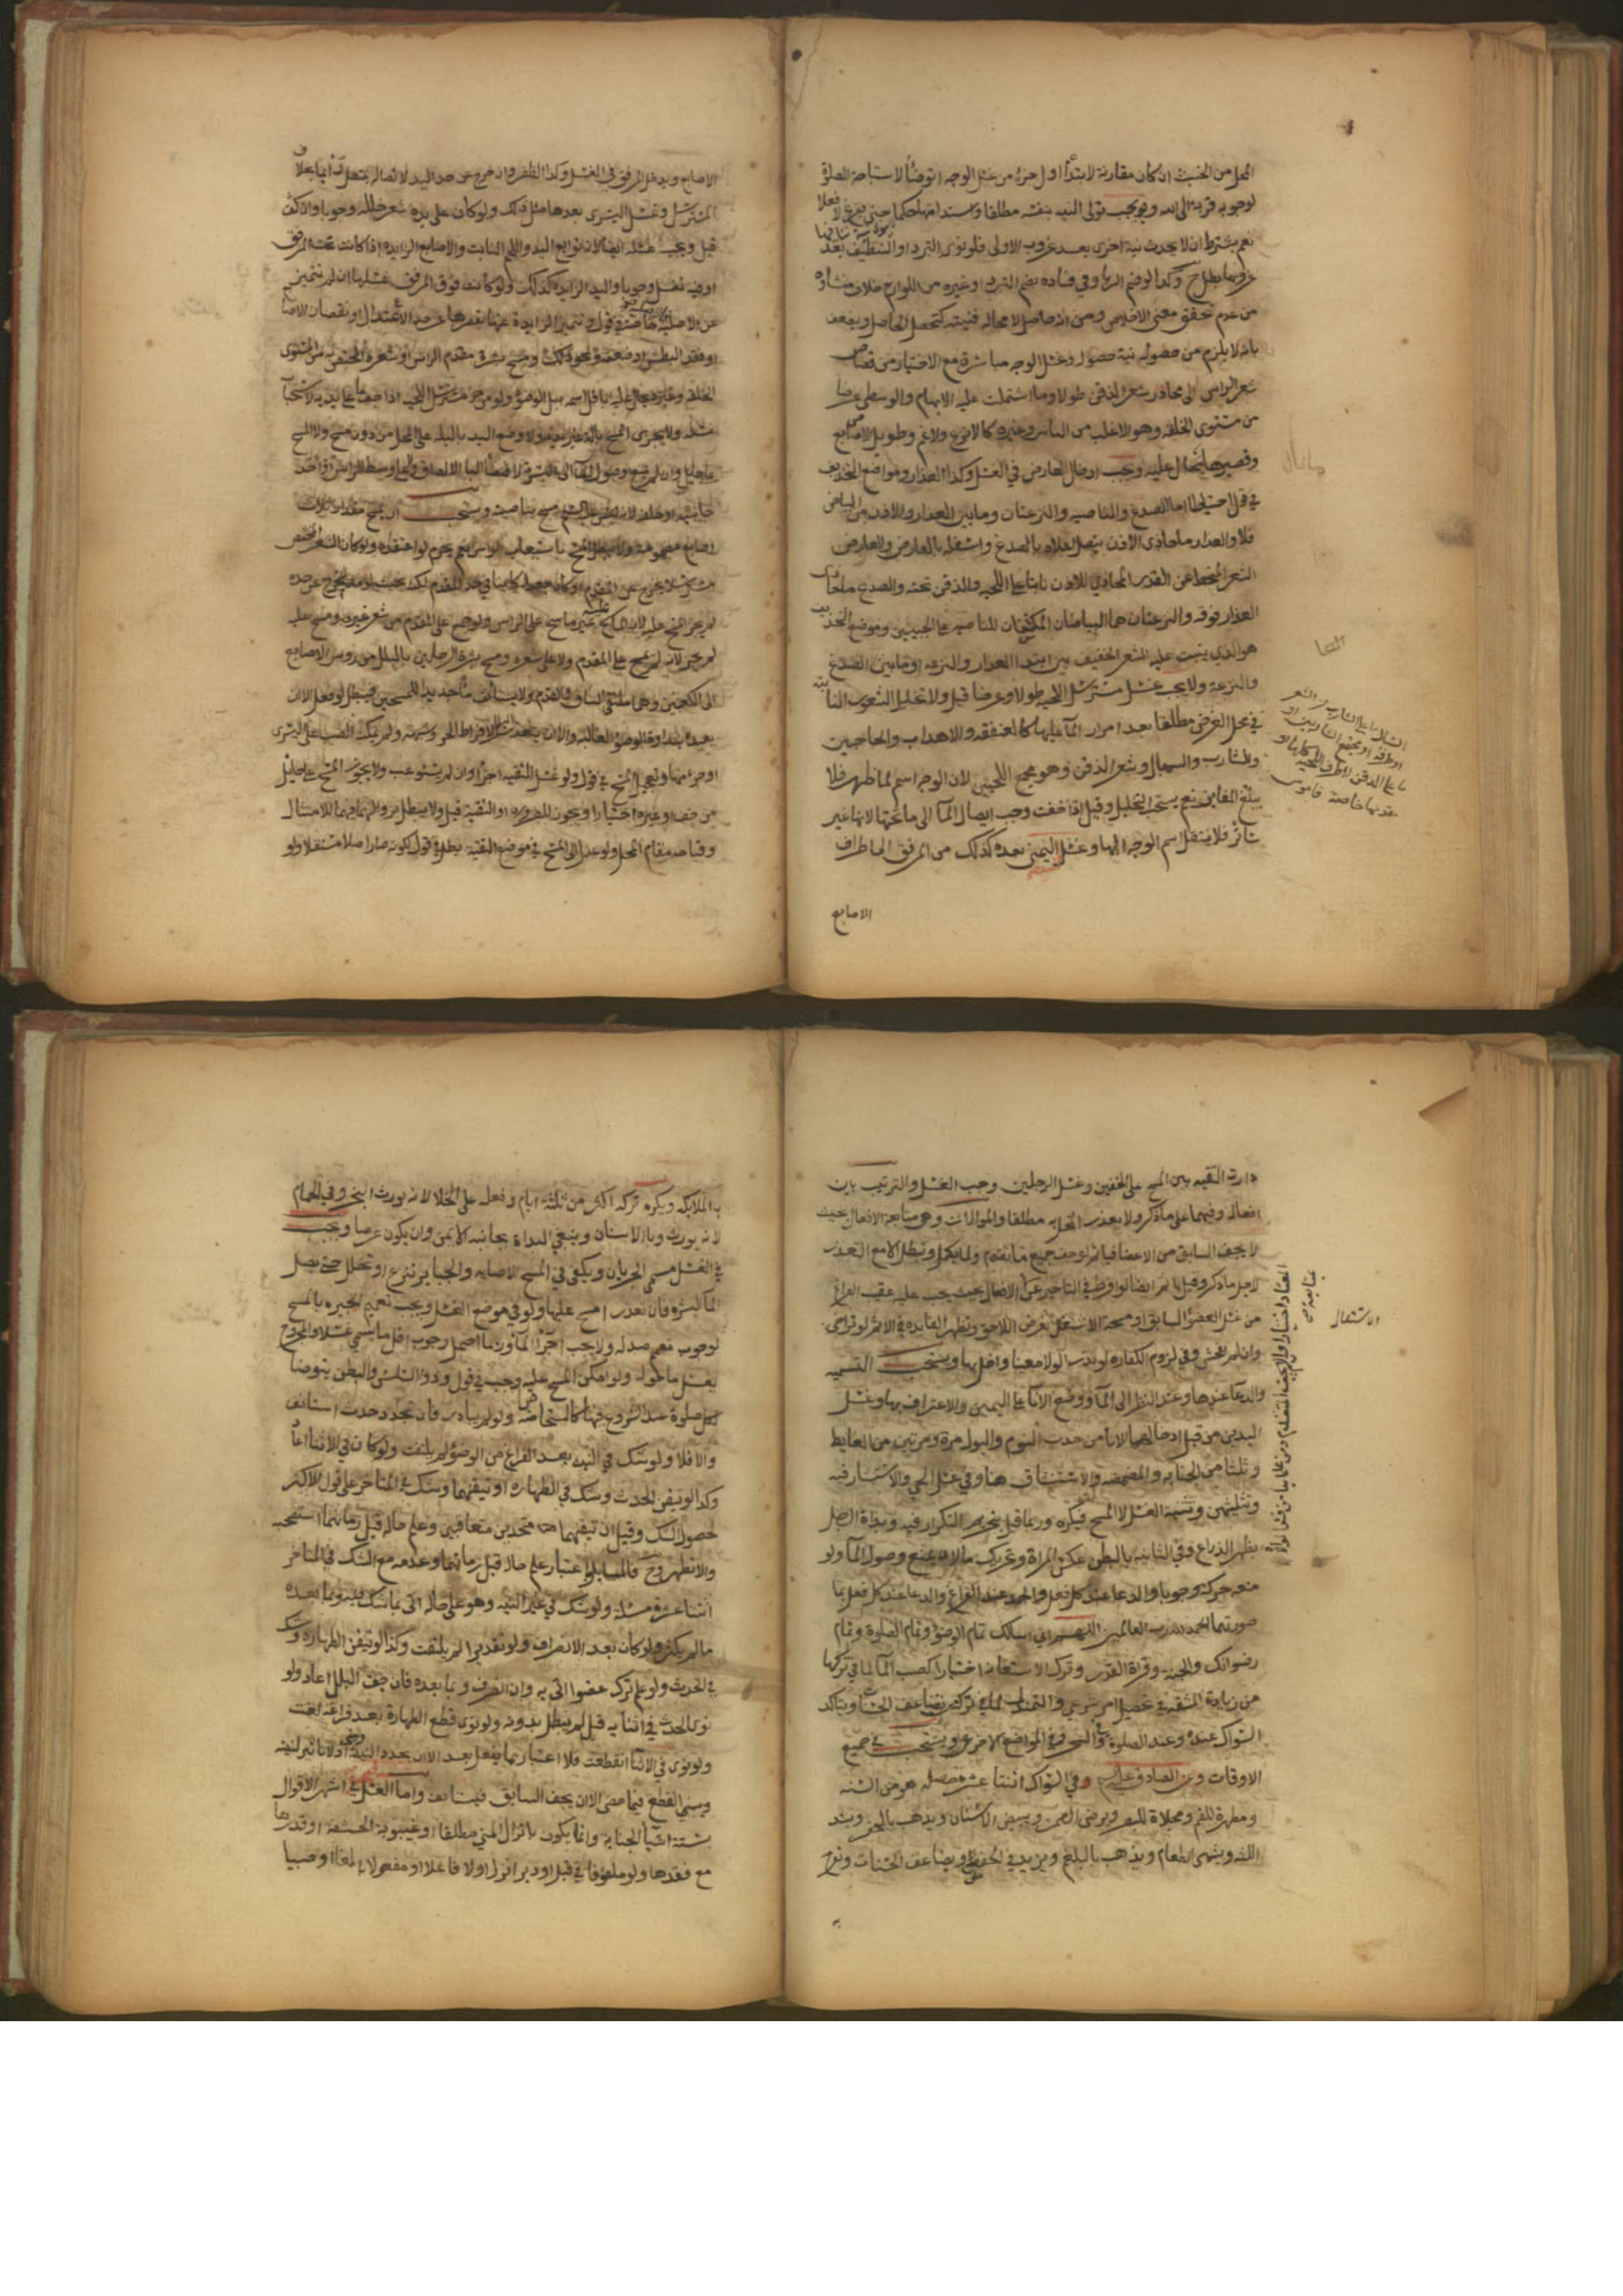 المحل من الخبث ان كان مقارنة لابتداء اول جزء من غسل الوجه اتوضأ لاستباحة الصلوة
لوجوبه قربة الى الله ويجب تولى النيه بنفسه مطلقا واستدامتها حكما حتى يفرغ لا فعلا
نعم يشترط ان لا يحدث نية اخرى بعد عزوب الاولى فلو نوى التبرد او التنظيف بعد
عزوبها بطل وكذا لو ضم الريا وفي فساده بضم التبرد او غيره من اللوازم خلاف منشاوه
من عدم تحقق معنى الاخلاص ومن انه حاصل لا محاله فنيته كتحصيل الحاصل ويضعف
بانه لا يلزم من حصوله نية حصوله وغسل الوجه مباشرة مع الاختيار من قصاص
شعر الراس الى محاذر شعر الذقن طولا وما اشتملت عليه الابهام والوسطى عرضا
من مستوى الخلقه وهو الاغلب من الناس وغيره كالانزع والاغم وطويل الاصابع
وقصيرها يحال عليه ويجب ادخال العارض في الغسل وكذا العذار ومواضع التحذيف
في قول احتياطا اما الصدغ والناصيه والنزعتان وما بين العذار والاذن من البياض
فلا والعذار ما حاذى الاذن يتصل اعلاه بالصدغ واسفله بالعارض والعارض
الشعر المنحط عن القدر المحاذي للاذن نابتا على اللحيه والذقن تحته والصدغ ما حاذى
العذار فوقه والنزعتان هما البياضان المكتنفان للناصيه على الجبينين وموضع التحذيف
هو الذي ينبت عليه الشعر الخفيف بين ابتدا العذار والنزعه او ما بين الصدغ
والنزعة ولا يجب غسل مسترسل اللحية طولا وعرضا قيل ولا تخليل الشعور النابته
في محل الفرض مطلقا بعد امرار الما عليها كالعنفقه والاهداب والحاجبين
والشارب والسبال وشعر الذقن وهو مجمع اللحيين لان الوجه اسم لما ظهر فلا
يبلغ المغابن نعم يستحب التخليل وقيل اذا خفت وجب ايصال الما الى ما تحتها لانها غير
ساتر فلا ينتقل اسم الوجه اليها وغسل اليمنى بعده كذلك من المرفق الى اطراف
الاصابع
السبال ما على الشارب من الشعر
او طرفه او مجتمع الشاربين او
ما على الذقن الى طرف اللحية كلها او
مقدمها خاصة قاموس
الاصابع ويدخل المرفق في الغسل وكذا الظفر وان خرج عن حد اليد لاتصاله بمتصل دائما بخلاف
المسترسل وغسل اليسرى بعدها مثل ذلك ولو كان على يده شعر خلله وجوبا وان كثف
قيل ويجب غسله ايضا لانه من توابع اليد واللحم النابت والاصابع الزايده اذا كانت تحت المرفق
او فيه تغسل وجوبا واليد الزايده كذلك ولو كانت فوق المرفق غسلها ان لم تتميز
عن الاصليه خاصة في قول وتتميز الزايدة عنها بقصرها عن حد الاعتدال او نقصان الاصابع
او فقد البطش او ضعفه ونحو ذلك ومسح بشرة مقدم الراس او شعره المختص به من مستوى
غسله ولا يجزى المسح بالة غير يده ولا وضع اليد بالبله على المحل من دون مسح ولا المسح
اصابع مضمومة ولا يبطل المسح باستيعاب الراس نعم يحرم لو اعتقده ولو كان الشعر المختص
لم يجز المسح عليه لان الماسح عليه غير ماسح على الراس ولو جمع على المقدم من شعر غيره ومسح عليه
لم يجز لانه لم يمسح على المقدم ولا على شعره ومسح بشرة الرجلين بالبلل من روس الاصابع
الى الكعبين وهما ملتقى الساق والقدم ولا يستانف ماء جديدا للمسحين فيبطل لو فعل الا ان
او جزء منها ويجب المسح في قول ولو غسل للتقيه اجزا وان لم يستوعب ولا يجوز المسح على حايل
من خف او غيره اختيارا ويجوز للضروره او التقية قيل ولا يبطل بزوالهما للامتثال
وقيامه مقام المحل ولو عدل الى المسح في موضع التقيه بطل في قول لكونه صار اصلا مستقلا ولو
دارت التقيه بين المسح على الخفين وغسل الرجلين وجب الغسل والترتيب بين
افعاله وفيهما على ما ذكر ولا يعذر المخل به مطلقا والموالات وهي متابعة الافعال بحيث
لا يجف السابق من الاعضا فياثم لو جف جميع ما تقدم ولما يكمل وتبطل الا مع التعذر
لاجل ما ذكر وقيل ياثم ايضا لو افرط في التاخير عن الافعال بحيث يجب عليه عقيب الفراغ
من غسل العضو السابق او مسحه الاشتغال بفرض اللاحق وتظهر الفايده في الاثم لو تراخى
وان لم يجف وفي لزوم الكفاره لو نذر الولا معينا واخل بها ويستحب التسميه
والدعا عندها وعند النظر الى الما ووضع الانا على اليمين والاعتراف بها وغسل
اليدين من قبل ادخالهما الانا من حدث النوم والبول مرة ومرتين من الغايط
وثلثا من الجنابه والمضمضه والاستنشاق هنا وفي غسل الحي والاستنثار فيه
وتثليثهن وتثنية الغسل لا المسح فيكره وربما قيل بتحريم التكرار فيه وبداة الرجل
بظهر الذراع وفي الثانيه بالبطن عكس المراة وتحريك ما لا يمنع وصول الما ولو
منعه حركه وجوبا والدعا عند كل فعل والحمد عند الفراغ والدعا عند كل فعل بما
صورتها الحمد لله رب العالمين اللهم اني اسالك تمام الوضوء وتمام الصلوة وتمام
رضوانك والجنه وقراة القدر وترك الاستعانه اختيارا كصب الما لما في تركها
من زيادة المشقه في تحصيل امر شرعي والتمندل لما في تركه من تضاعف الحسنات ويتاكد
السواك عنده وعند الصلوة وفي السحر وفي المواضع الاخر ويستحب في جميع
الاوقات وعن الصادق عليه السلم وفي السواك اثنتا عشرة خصله هو من السنه
ومطهرة للفم ومجلاة للبصر ويرضى الرحمن ويبيض الاسنان ويذهب بالحفر ويشد
اللثه ويشهي الطعام ويذهب بالبلغم ويزيد في الحفظ ويضاعف الحسنات وتفرح
به
الاشتغال
به الملايكه ويكره تركه اكثر من ثلثة ايام وفعله على الخلا لانه يورث البخر وفي الحمام
لانه يورث وبا الاسنان وينبغي البداة بجانبه الايمن وان يكون عرضا ويجب
في الغسل مسمى الجريان ويكفي في المسح الاصابه والجبا ير تنزع او تخلل حتى يصل
الما البشره فان تعذر امسح عليها ولو في موضع الغسل ويجب تعميم الجبيره بالمسح
بغسل ما حوله ولو امكن المسح عليه وجب في قول وذوا السلس والبطن يتوضا
لكل صلوة عند الشروع فيها كالمستحاضه ولو لم يبادر فان تجدد حدث استانف
والا فلا ولو شك في النيه بعد الفراغ من الوضوء لم يلتفت ولو كان في الاثنا اعاد
وكذا لو تيقن الحدث وشك في الطهاره او تيقنهما وشك في المتاخر على قول الاكثر
لحصول الشك وقيل ان تيقنهما متحدين متعاقبين وعلم حاله قبل زمانهما استصحبه
والا تطهر وح فالمسايل باعتبار علم حاله قبل زمانهما وعدمه مع الشك في المتاخر
اثنتا عشرة مسئلة ولو شك في غير النيه وهو على حاله اتى بما شك فيه وبما بعده
ما لم يكثر ولو كان بعد الانصراف ولو تقديرا لم يلتفت وكذا لو تيقن الطهاره وشك
في الحدث ولو علم ترك عضو اتى به وان انصرف وبما بعده فان جف البلل اعاد ولو
نوى الحدث في اثنايه قيل لم يبطل بدونه ولو نوى قطع الطهارة بعد فراغه لغت
ولو نوى في الاثنا انقطعت فلا اعتبار بما يفعل بعد الا ان يجدد النيه اذ لا تاثير لنيه
القطع فيما مضى الا ان يجف السابق فيستانف واما الغسل في اشهر الاقوال
بستة اشيا الجنابة وانما يكون بانزال المني مطلقا او غيبوبة الحشفه او قدرها
مع فقدها ولو ملفوفا في قبل او دبر انزل اولا فاعلا او مفعولا بالغا او صبيا